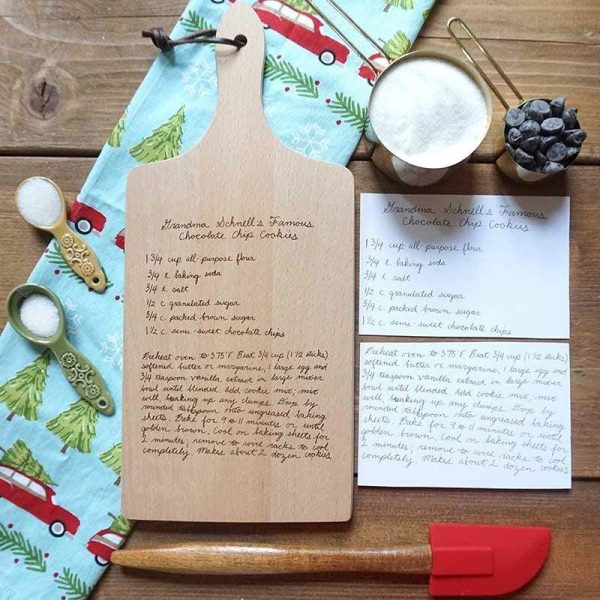 Grandma Schnell's Famous
Chocolate Chip Cookies
1 3/4 cup all-purpose flour
3/4 t. baking soda
3/4 t. salt
1/2 c. granulated sugar
3/4 c. packed brown sugar
1 1/2 c. semi-sweet chocolate chips
Preheat oven to 375°F. Beat 3/4 cup (1 1/2 sticks)
softened butter or margarine, 1 large egg and
3/4 teaspoon vanilla extract in large mixer
bowl until blended. Add cookie mix; mix
well, breaking up any clumps. Drop by
rounded tablespoon onto ungreased baking
sheets. Bake for 9 to 11 minutes or until
golden brown. Cool on baking sheets for
2 minutes; remove to wire racks to cool
completely. Makes about 2 dozen cookies
Grandma Schnell's Famous
Chocolate Chip Cookies
1 3/4 cup all purpose flour
3/4 t. baking soda
3/4 t. salt
1/2 c. granulated sugar
3/4 c. packed brown sugar
1 1/2 c. semi-sweet chocolate chips
Preheat oven to 375°F. Beat 3/4 cup (1 1/2 sticks)
softened butter or margarine, 1 large egg and
3/4 teaspoon vanilla extract in large mixer
bowl until blended. Add cookie mix; mix
well, breaking up any clumps. Drop by
rounded tablespoon onto ungreased baking
sheets. Bake for 9 to 11 minutes or until
golden brown. Cool on baking sheets for
2 minutes; remove to wire racks to cool
completely. Makes about 2 dozen cookies